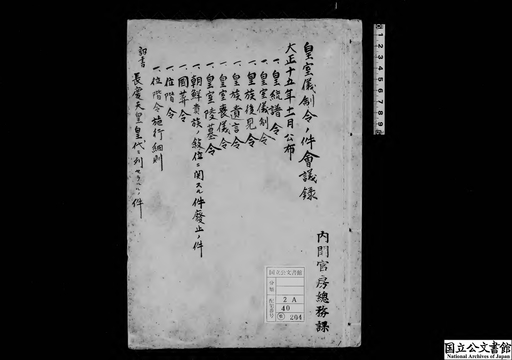 皇室儀制令ノ件會議錄
大正十五年十一月公布
一、皇統譜令
一、皇室儀制令
一、皇族後見令
一、皇族遺言令
一、皇室喪儀令
一、皇室陵墓令
一、朝鮮貴族ノ敍位ニ関スル件廢止ノ件
一、國葬令
一、位階令
一、位階令施行細則
詔書
長慶天皇皇代ニ列セラルヽノ件
内閣官房總務課
国立公文書館
分類
2A
40
264
国立公文書館
National Archives of Japan